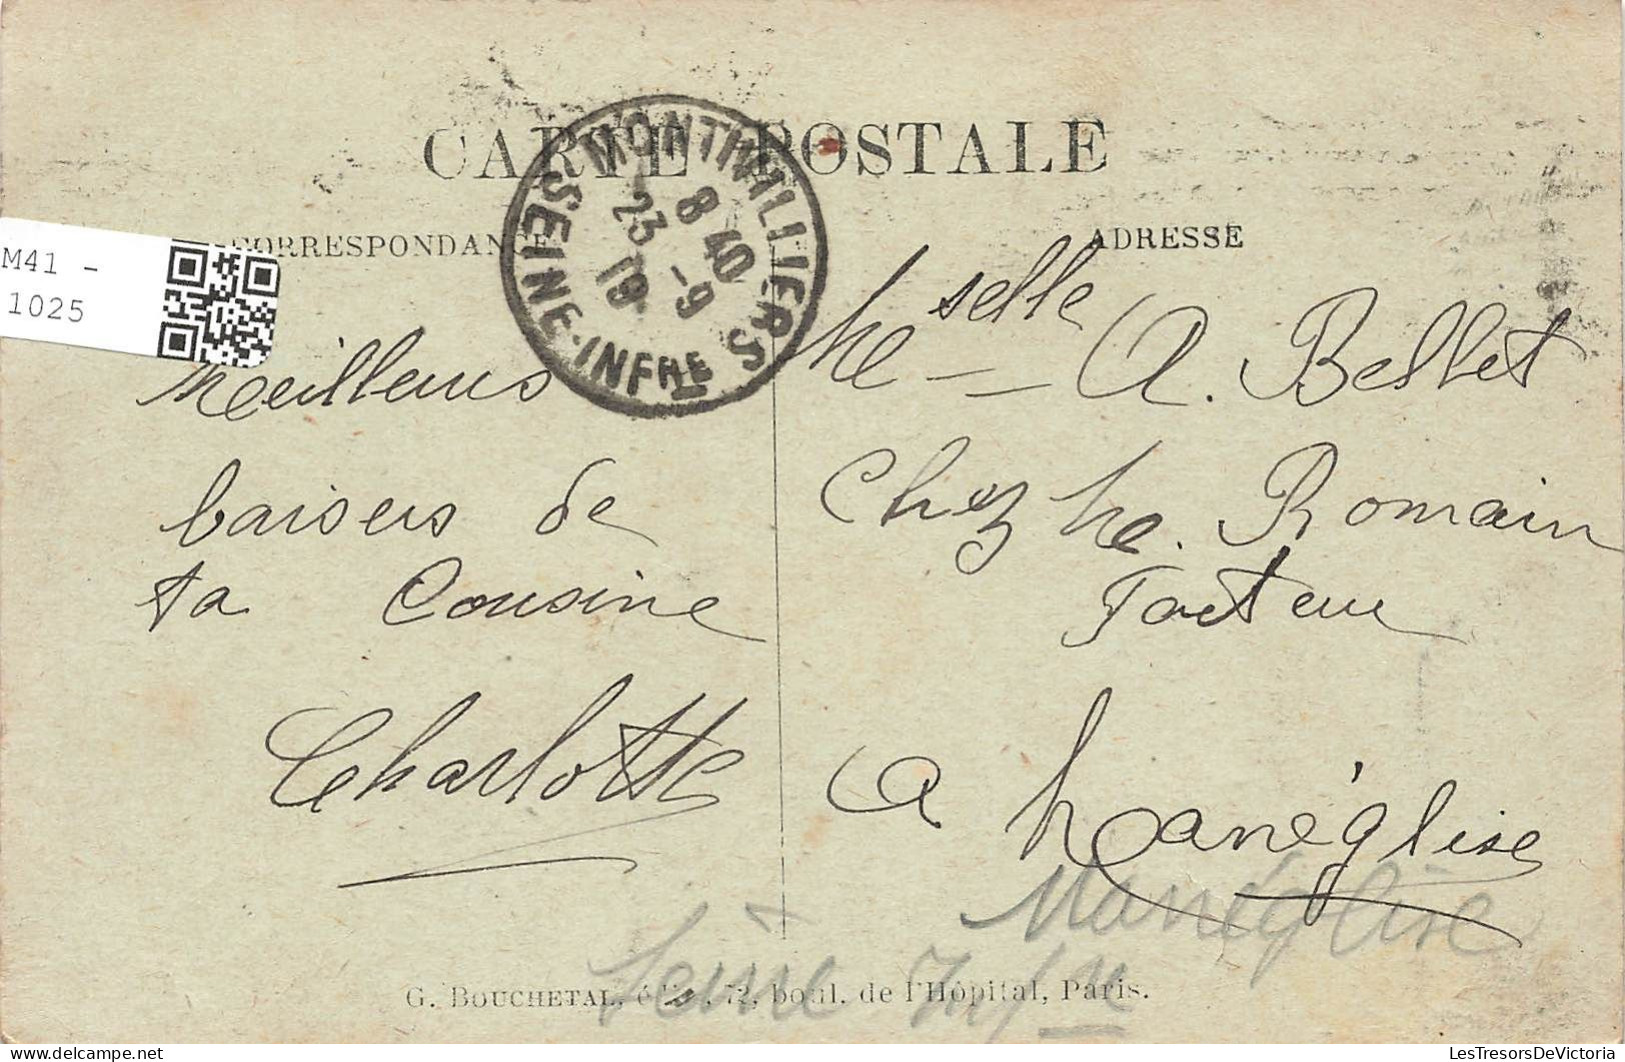 CARTE POSTALE
MONTIVILLIERS
8 40
23 - 9
19
SEINE-INFRE
M41 -
1025
CORRESPONDANCE
Meilleurs
baisers de
ta Cousine
Charlotte
ADRESSE
Me selle A. Bellet
Chez Me. Romain
Facteur
A Manéglise
Manéglise
Seine Infre
G. BOUCHETAL, édit., 72, boul. de l'Hôpital, Paris.
LesTresorsDeVictoria
www.delcampe.net